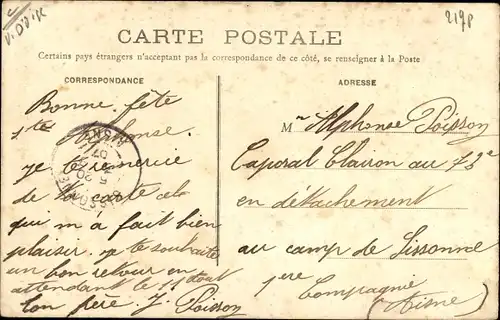 2198
CARTE POSTALE
Certains pays étrangers n'acceptant pas la correspondance de ce côté, se renseigner à la Poste
CORRESPONDANCE
ADRESSE
Bonne fête
Alphonse.
je te remercie
de ta carte cela
qui m'a fait bien
plaisir. je te souhaite
un bon retour en
attendant le 11 août
ton père J. Poisson
Mr Alphonse Poisson
Caporal Clairon au
en détachement
au camp de Sissonne
1ere Compagnie
(Aisne)